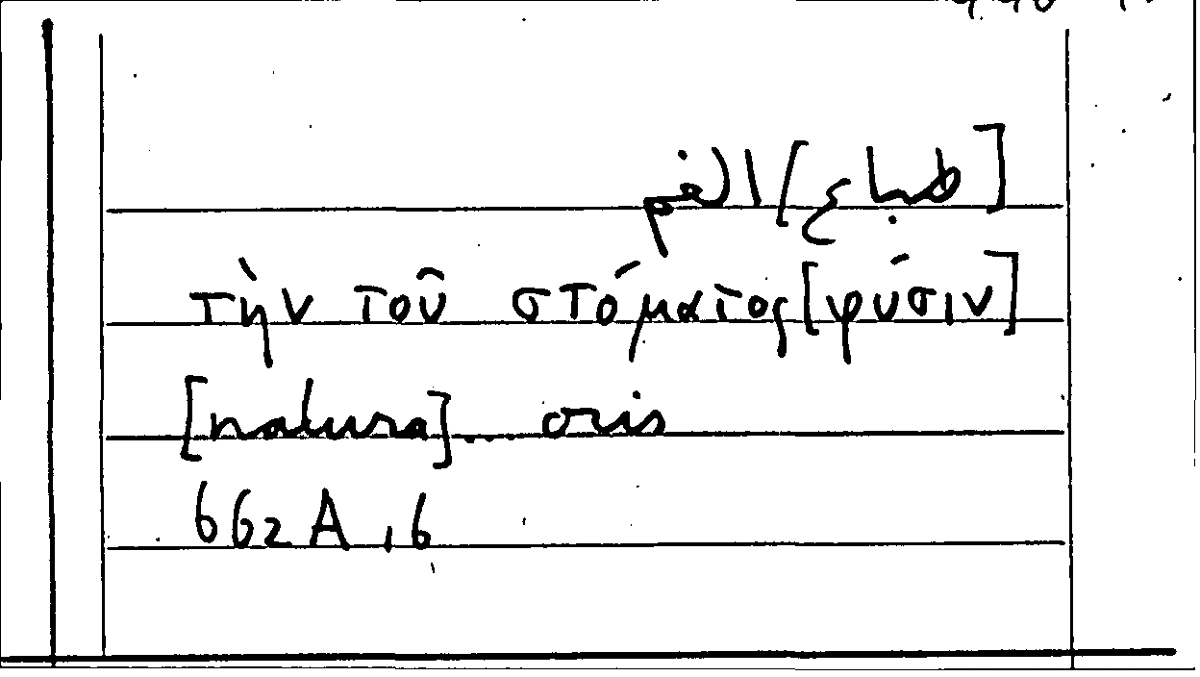 [طباع] الفم
τὴν τοῦ στόματος [φύσιν]
[natura]... oris
662A 16